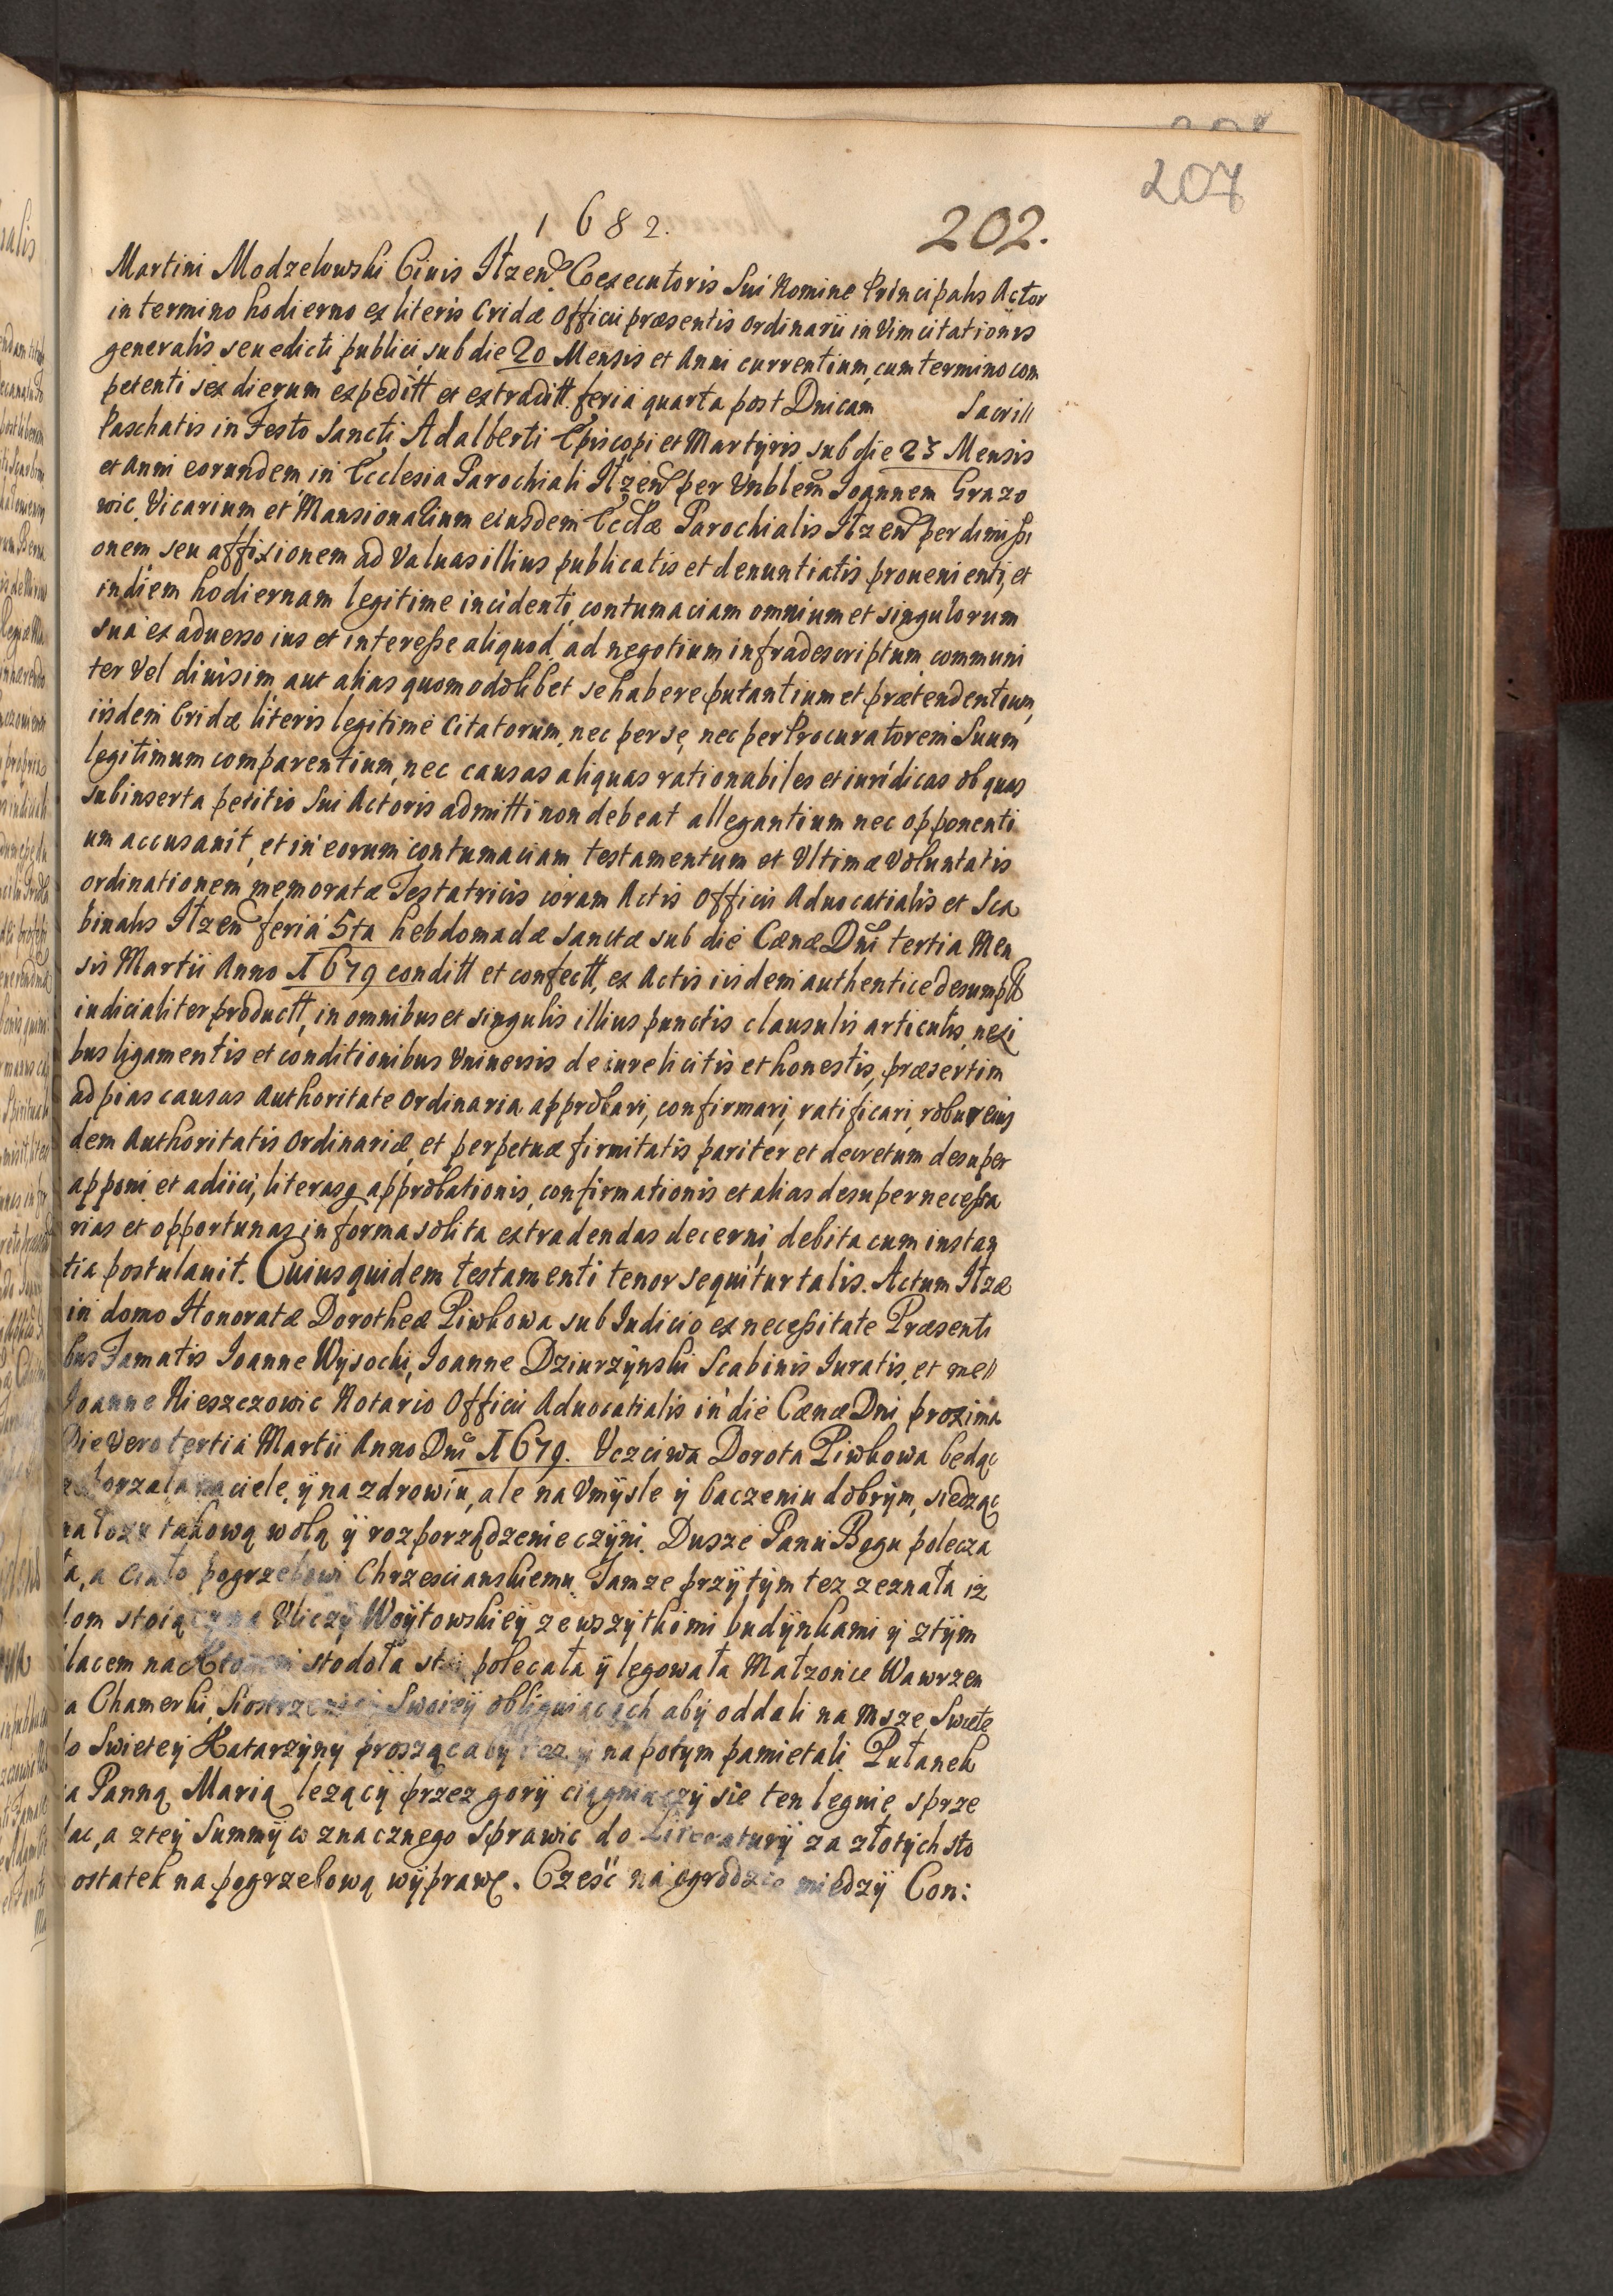 207
1682.
202.
Martini Modzelowski Ciuis Itzen. Coexecutoris Sui Nomine Principalis Actor
in termino hodierno ex literis Cridæ Officii præsentis ordinarii in Vim citationis
generalis seu edicti publici sub die 20 Mensis et Anni currentium, cum termino com
petenti sex dierum expeditt et extraditt. feria quarta post Dnicam Sacrill
Paschatis in Festo Sancti Adalberti Episcopi et Martyris sub die 23 Mensis
et Anni eorundem in Ecclesia Parochiali Itzen per Vnblem Joannem Grazo
wic, Vicarium et Mansionalium eiusdem Eccliæ Parochialis Itzen per dimissi
onem, seu affixionem ad Valuas illius publicatis et denuntiatis prouenienti, et
in diem hodiernam legitime incidenti, contumaciam omnium et singulorum
sua ex aduerso ius et interesse aliquod ad negotium infradescriptum communi
ter Vel diuisim aut alias quomodolibet se habere putantium et prætendentium,
iisdem Cridæ literis legitime Citatorum, nec per se, nec per Procuratorem Suum
legitimum comparentium, nec causas aliquas rationabiles et iuridicas ob quas
subinserta petitio Sui Actoris admitti non debeat allegantium nec opponenti
um accusauit, et in eorum contumaciam testamentum et Vltimæ Voluntatis
ordinationem memoratæ Testatricis coram Actis Officii Aduocatialis et Sca
binalis Itzen feria 5ta hebdomadæ Sanctæ sub die Cænæ Dni tertia Men
sis Martii Anno 1679 conditt et confectt, ex Actis iisdem authentice desumptt
iudicialiter productt, in omnibus et singulis illius punctis clausulis articulis, nexi
bus ligamentis et conditionibus Vniuersis de iure licitis et honestis, præsertim
ad pias causas Authoritate Ordinaria approbari, confirmari, ratificari, robur eius
dem Authoritatis Ordinariæ, et perpetuæ firmitatis pariter et decretum desuper
apponi et adiici, literasq approbationis, confirmationis et alias desuper necessa
rias et opportunas in forma solita extradendas decerni debita cum instan
tia postulauit. Cuius quidem testamenti tenor sequitur talis. Actum Itzæ
in domo Honoratæ Dorotheæ Piwkowa sub Iudicio ex necessitate Præsenti
bus Famatis Ioanne Wysocki, Ioanne Dziurzynski Scabinis Iuratis, et me
Ioanne Nieszczowic Notario Officii Aduocatialis in die Cænæ Dni proxima
Die Vero tertia Martii Anno Dni 1679. Vczciwa Dorota Piwkowa będąc
na ciele, ÿ na zdrowiu, ale na Vmysle ÿ baczeniu dobrym, siedząc
na łozu takową wolą ÿ rozporządzenie czÿni. Dusze Panu Bogu polecza
ła, a Ciało pogrzebowi Chrzescianskiemu. Tamze przÿ tÿm tez zeznała iz
dom stoiącÿ na Vliczÿ Woÿtowskieÿ ze wszÿtkimi budÿnkami ÿ ztÿm
placem na ktorem stodoła stoi polecała ÿ legowała Małzonce Wawrzen
a Chamerki, Siostrzenicÿ Swoieÿ obliguiąc ich abÿ oddali na Msze Swiete
do Swieteÿ Katarzÿnÿ prosząc abÿ tez ÿ na potym pamietali. Pułanek
a Panną Marią lezącÿ przez gorÿ ciągniączÿ sie ten legnie, sprze
dac, a zteÿ Summÿ co znacznego sprawic do Literaturÿ za złotÿch sto
ostatek na pogrzebową wÿprawę. Częsć na ogrodzie miedzÿ Con: